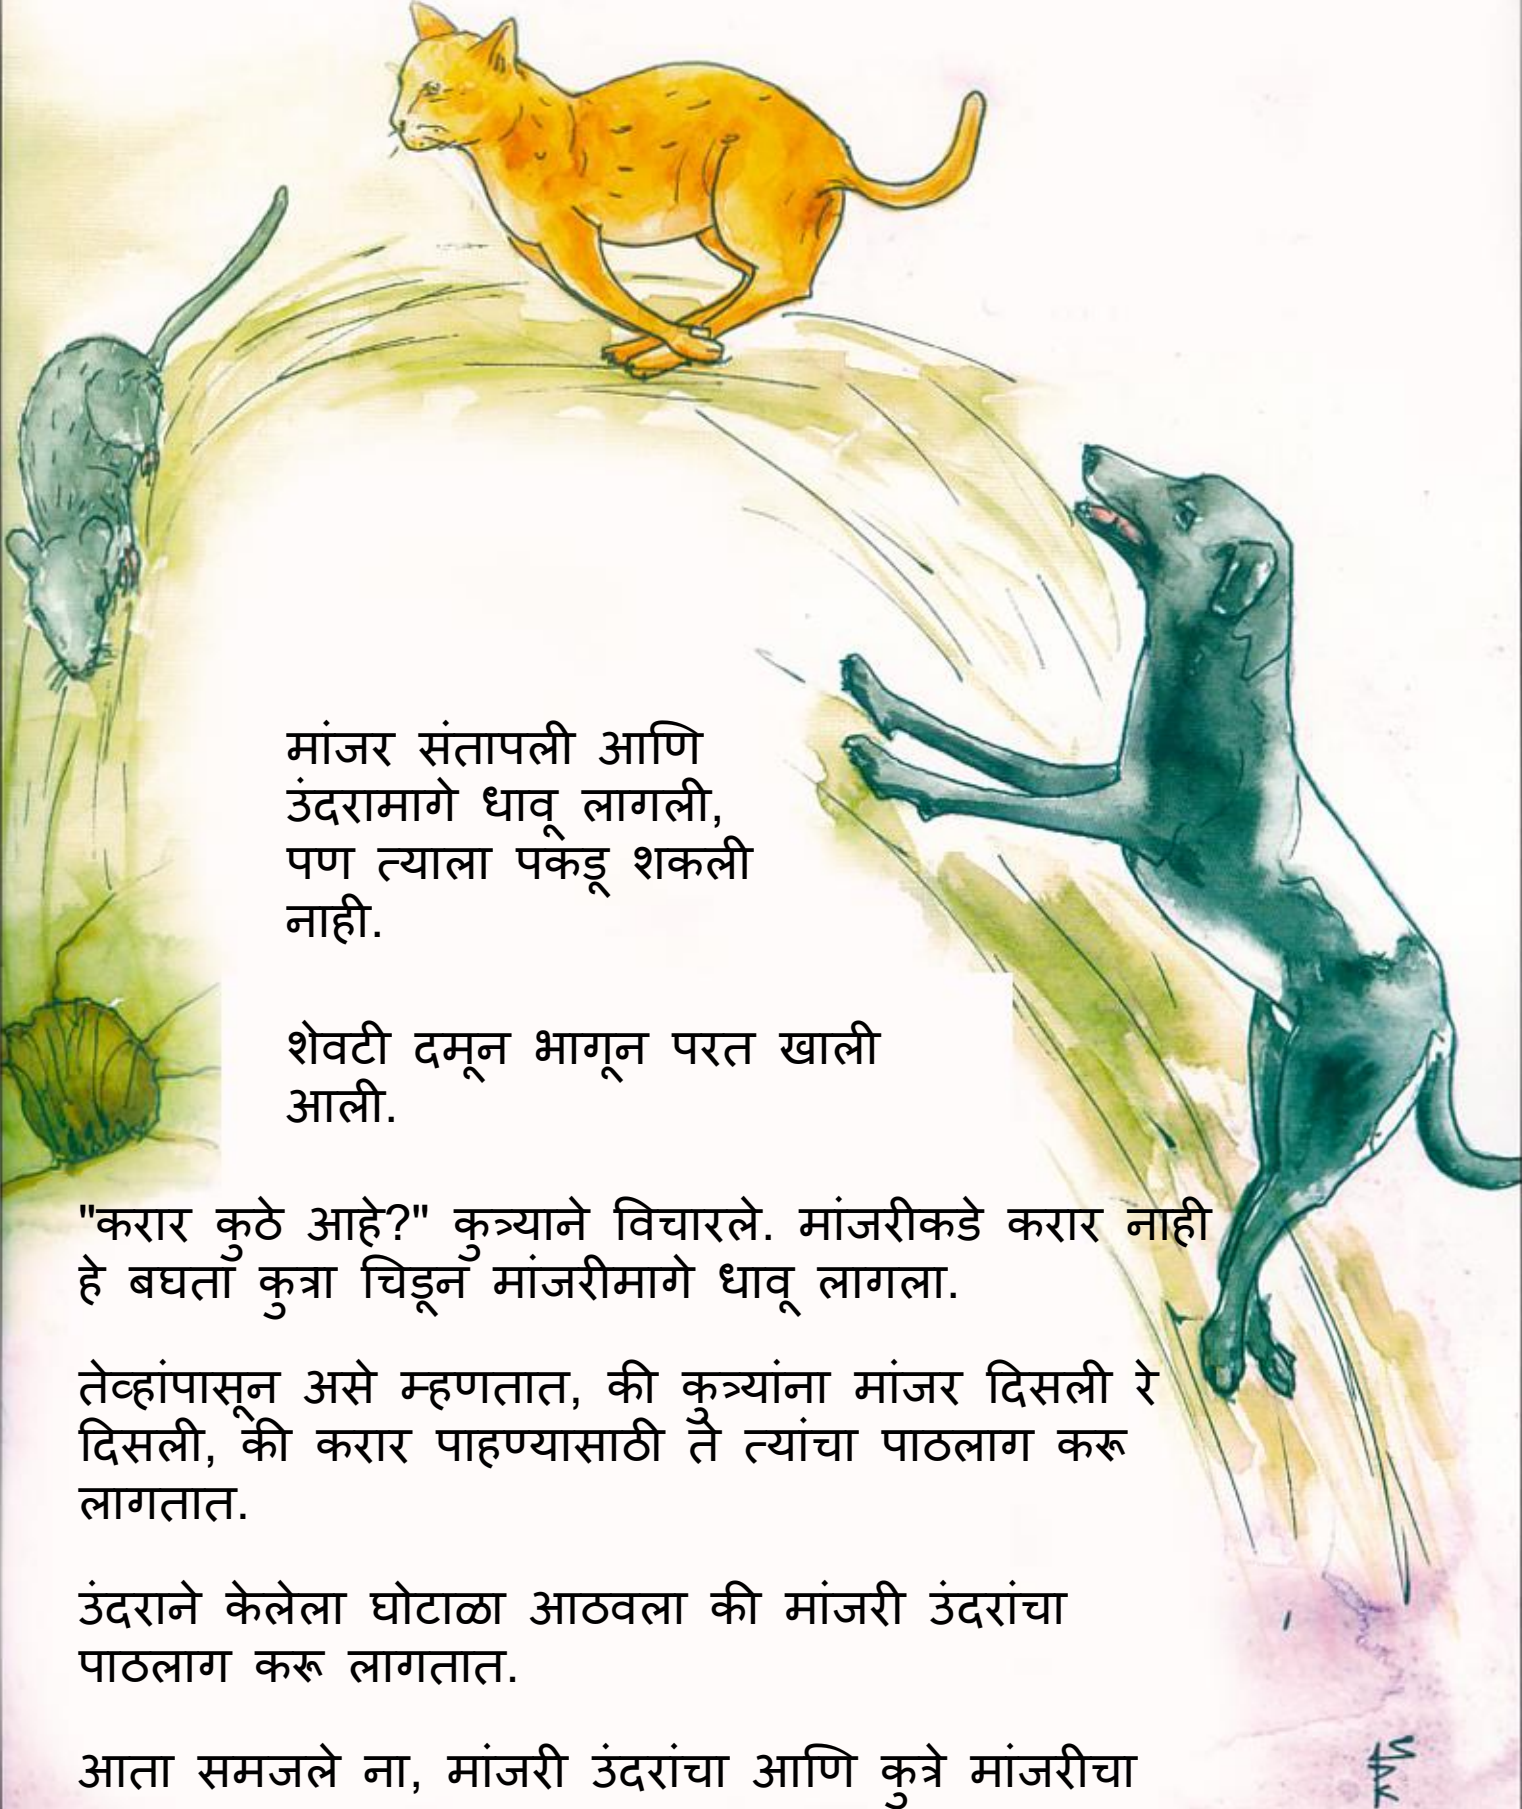 मांजर संतापली आणि
उंदरामागे धावू लागली,
पण त्याला पकडू शकली
नाही.
शेवटी दमून भागून परत खाली
आली.
"करार कुठे आहे?" कुत्र्याने विचारले. मांजरीकडे करार नाही
हे बघता कुत्रा चिडून मांजरीमागे धावू लागला.
तेव्हांपासून असे म्हणतात, की कुत्र्यांना मांजर दिसली रे
दिसली, की करार पाहण्यासाठी ते त्यांचा पाठलाग करू
लागतात.
उंदराने केलेला घोटाळा आठवला की मांजरी उंदरांचा
पाठलाग करू लागतात.
आता समजले ना, मांजरी उंदरांचा आणि कुत्रे मांजरीचा